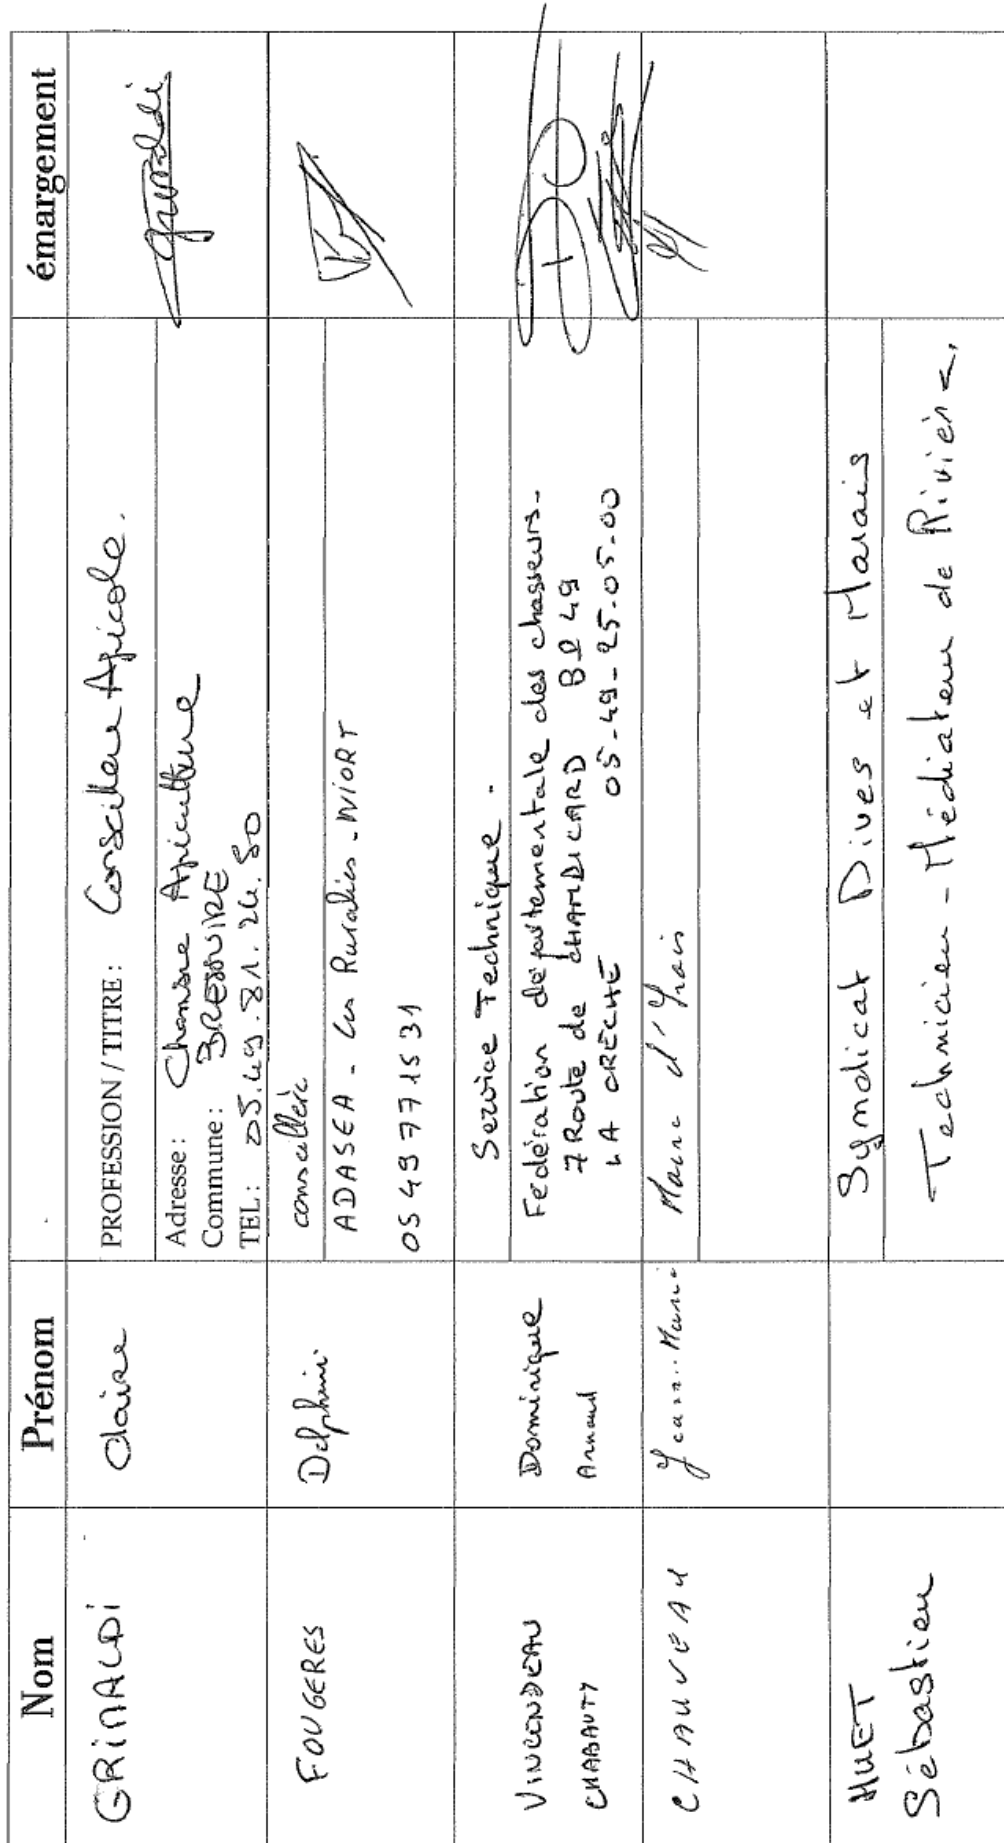 Nom Prénom émargement
GRINALDI Claire PROFESSION / TITRE : Conseillere Apicole.
Adresse : Chambre Agriculture
Commune : BRESSUIRE
TEL : 05.49.81.24.50
FOUGERES Delphine conseillère
ADASEA - Les Ruralies - NIORT
05 49 77 15 31
Service Technique -
VINCENDEAU Dominique Fédération départementale des chasseurs -
CHABAUTY Arnaud 7 Route de CHAMPICARD BP 49
LA CRECHE 05-49-25-05-00
CHAUVEAU Jean-Marie Maire d'Irais
HUET Syndicat Dives et Marais
Sébastien - Technicien - Médiateur de Rivière,